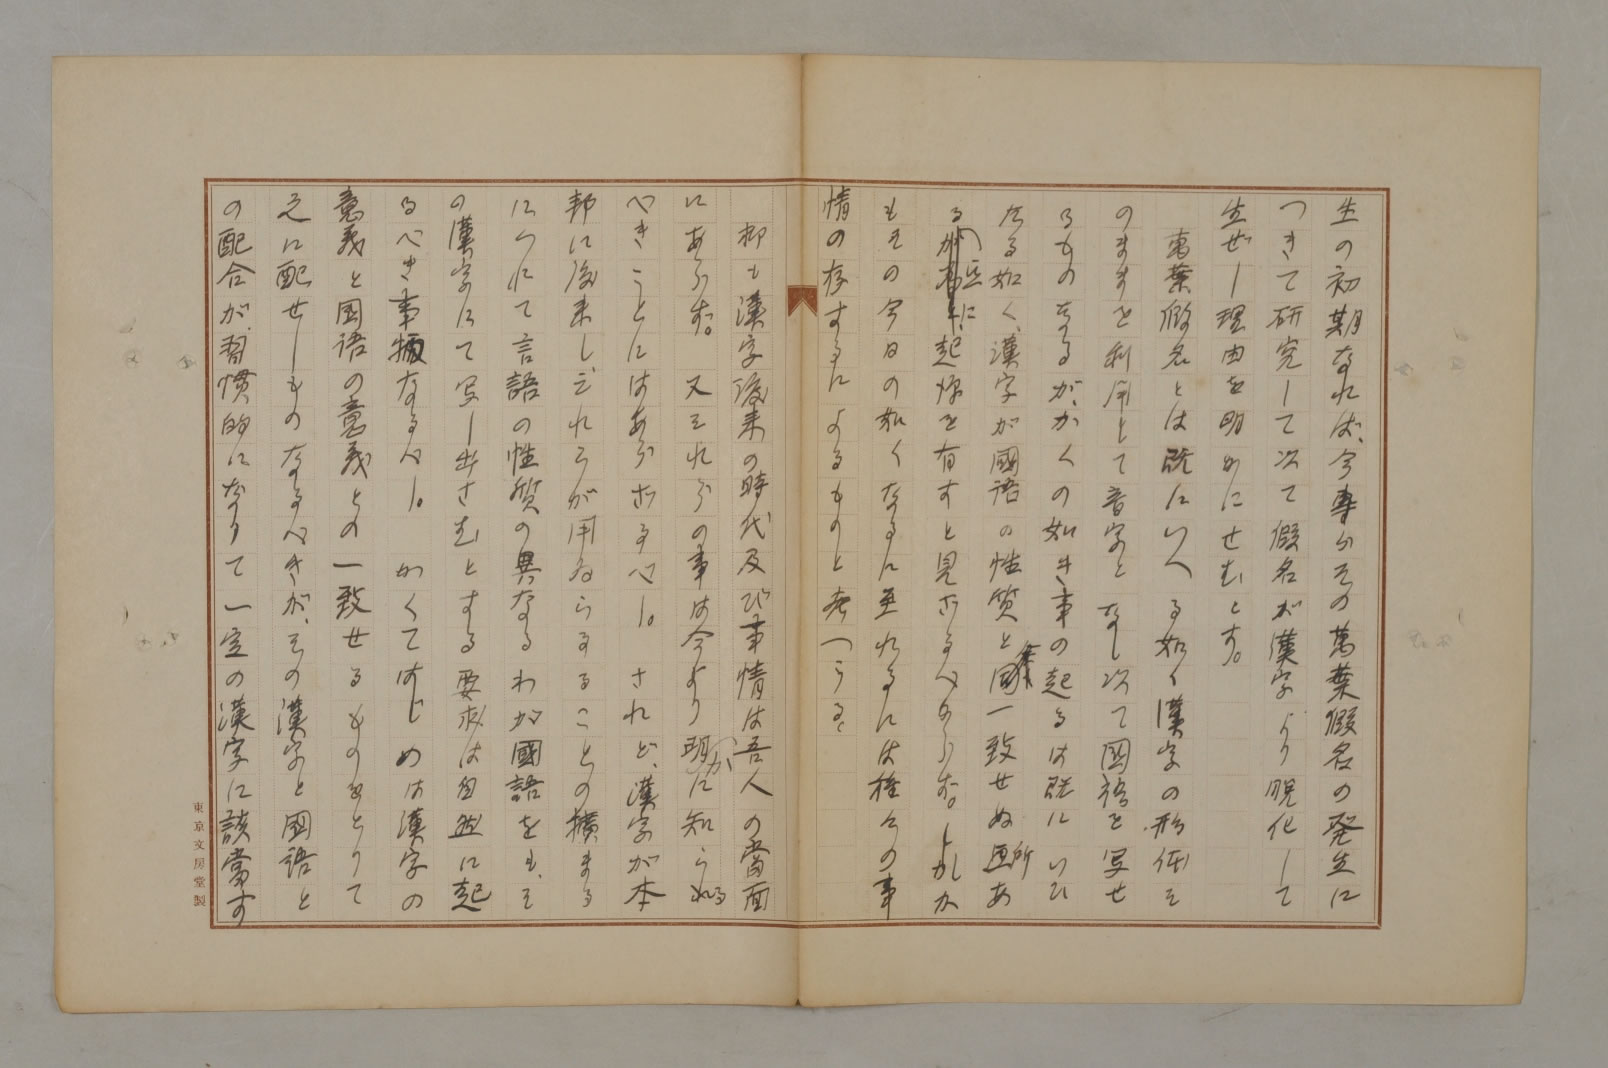 生の初期なれば、今専らその萬葉假名の発生に
つきて研究して次て假名が漢字より脱化して
生ぜし理由を明かにせむとす。
萬葉假名とは既にいへる如く漢字の形体そ
のままを利用して音字となし次て國語を写せ
るものなるが、かくの如き事の起るは既にいひ
たる如く、漢字が國語の性質と一致せぬ所あ
るが為に起源を有すと見ざるべからず。しか
もその今日の如くなるに至れるには種々の事
情の存するによるものと考へらる。
抑も漢字渡来の時代及び事情は吾人の當面
にあらず。又それらの事は今より明かに知らるる
べきことにはあらざるべし。されど、漢字が本
邦に渡来しこれらが用ゐらるることの擴まる
につれて言語の性質の異なるわが國語をも、そ
の漢字にて写し出さむとする要求は自然に起
るべき事柄なるべし。かくてはじめは漢字の
意義と國語の意義との一致せるものをとりて
之に配せしものなるべきが、その漢字と國語と
の配合が、習慣的になりて一定の漢字に該當す
東京文房堂製